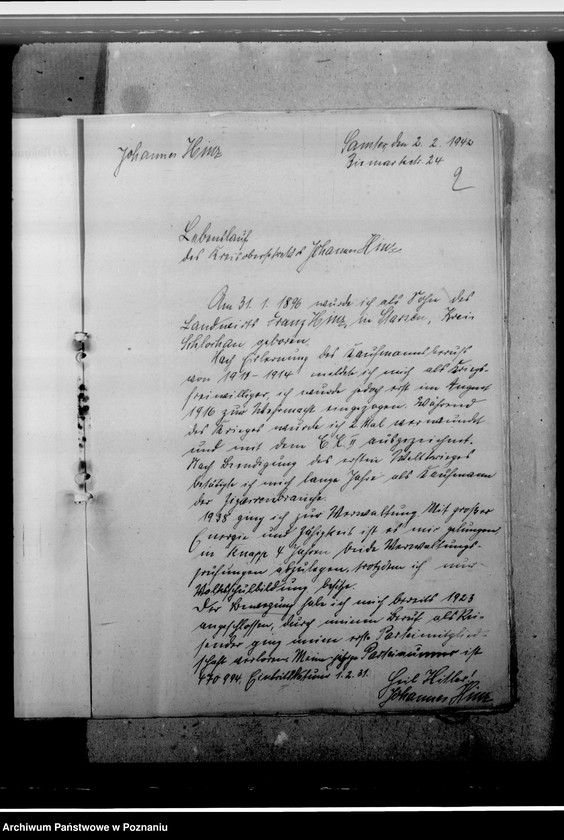 Johannes Hinz
Samter, den 2. 2. 1942
Bismarckstr. 24
2
Lebenslauf
des Kreisobersekretärs Johannes Hinz
Am 31. 1. 1896 wurde ich als Sohn des
Landwirts Franz Hinz in Starsen, Kreis
Schlochau geboren.
Nach Erlernung des Kaufmannsberufs
von 1911 - 1914 meldete ich mich als Kriegs-
freiwilliger, ich wurde jedoch erst im August
1916 zur Wehrmacht eingezogen. Während
des Krieges wurde ich 2 Mal verwundet
und mit dem E.K. II ausgezeichnet.
Nach Beendigung des ersten Weltkrieges
betätigte ich mich lange Jahre als Kaufmann
der Zigarrenbranche.
1938 ging ich zur Verwaltung. Mit großer
Energie und Zähigkeit ist es mir gelungen
in knapp 4 Jahren beide Verwaltungs-
prüfungen abzulegen, trotzdem ich nur
Volksschulbildung besitze.
Der Bewegung habe ich mich bereits 1923
angeschlossen, durch meinen Beruf als Rei-
sender ging meine erste Parteimitglied-
schaft verloren. Meine Parteinummer ist
470 994. Eintrittsdatum 1. 2. 31.
Heil Hitler!
Johannes Hinz
Archiwum Państwowe w Poznaniu